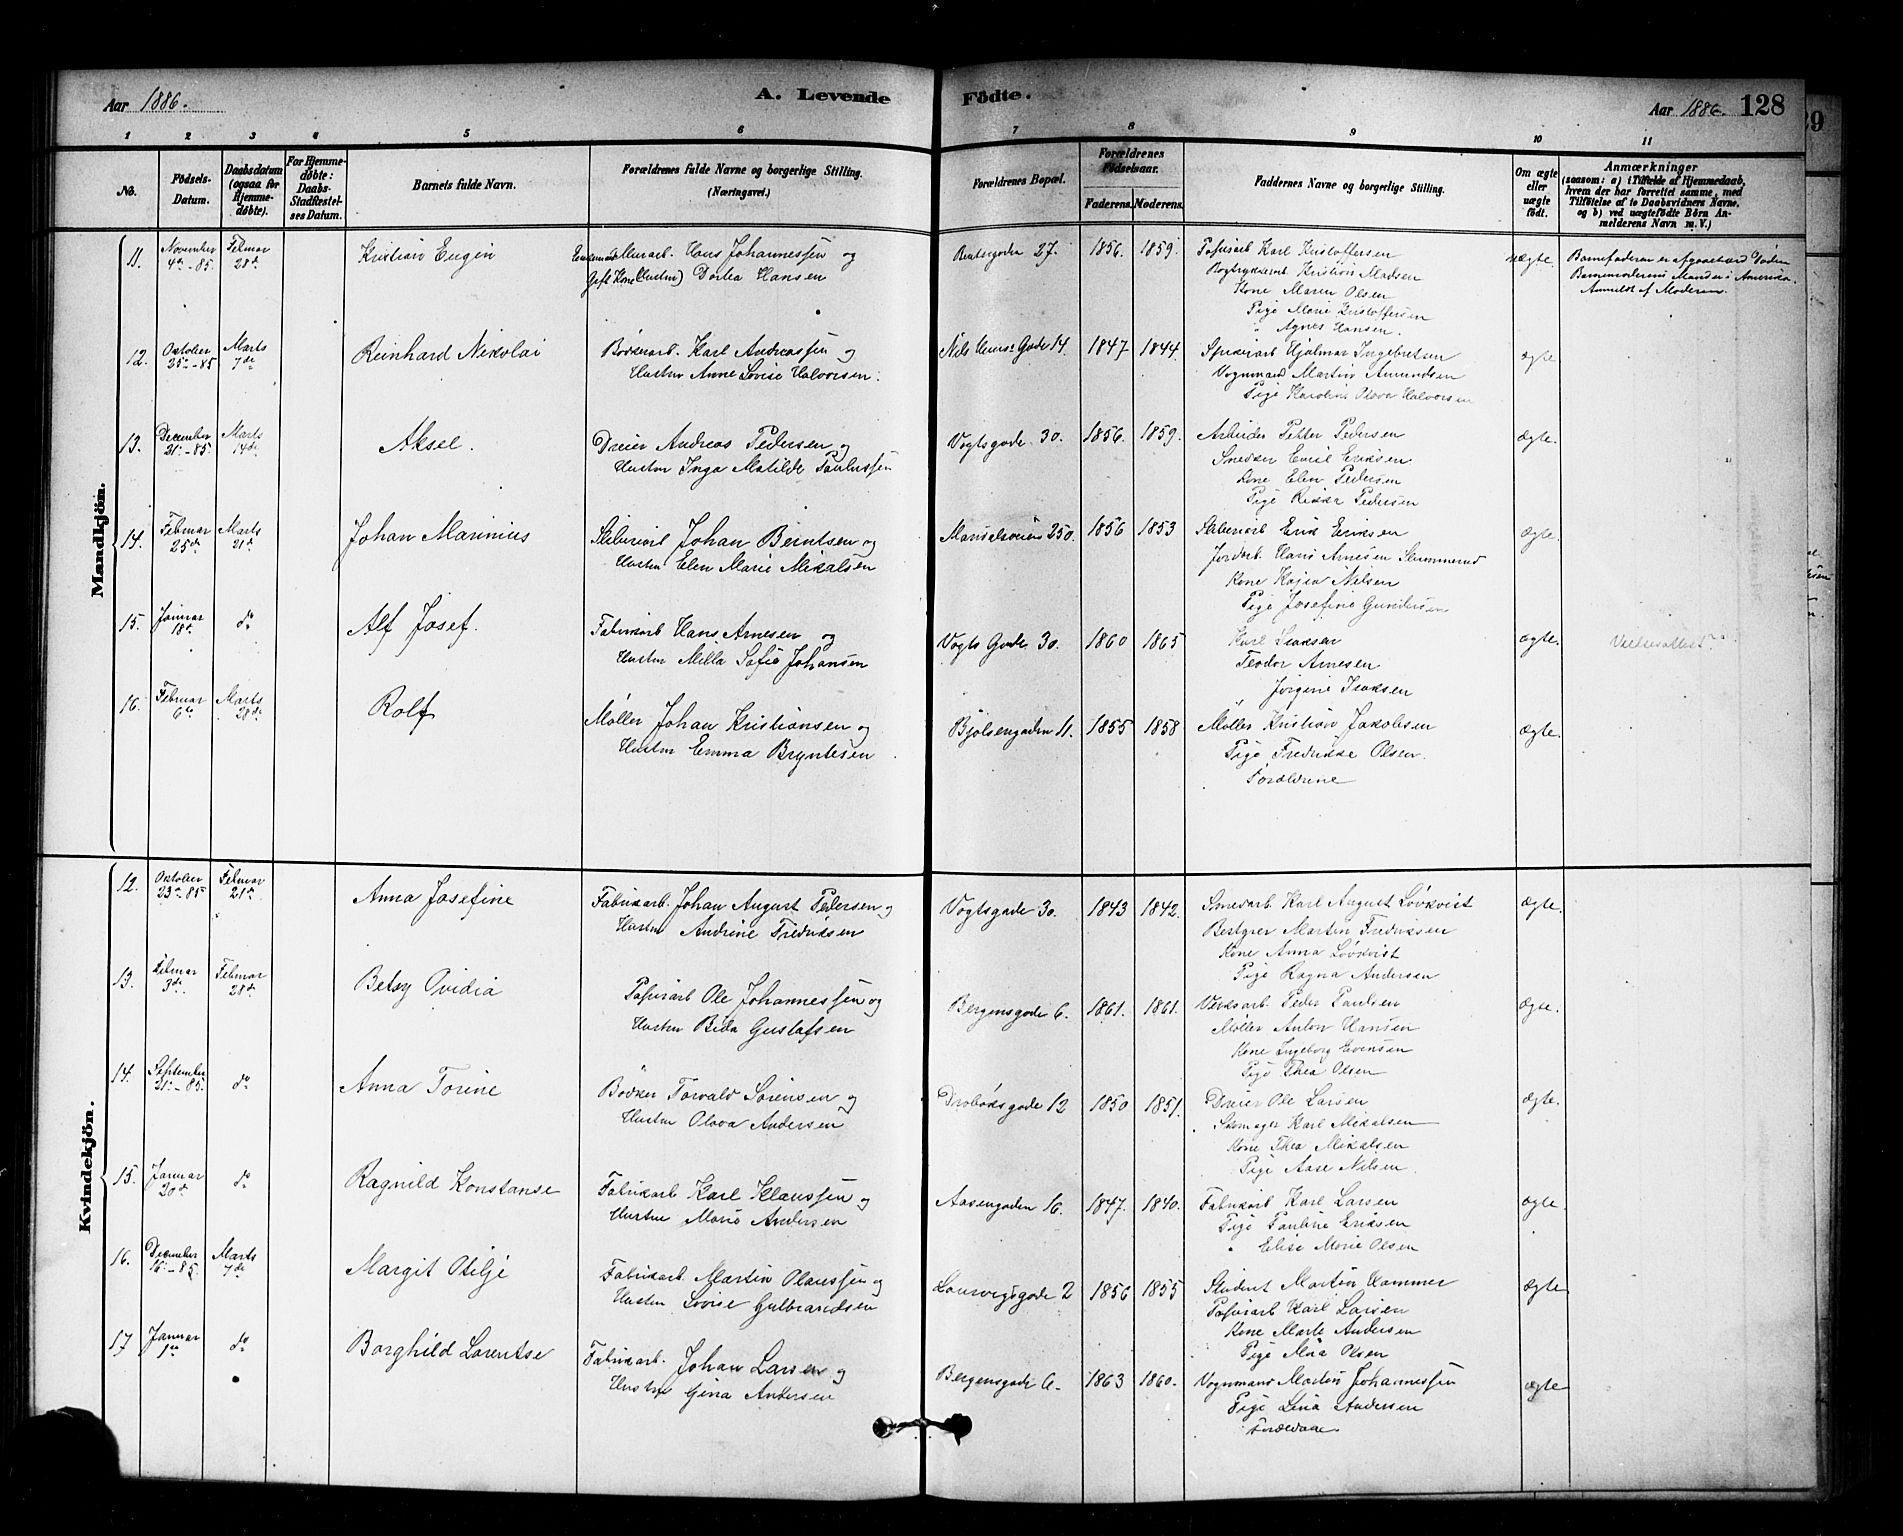 Aar 1886.
A. Levende Födte.
Aar 1886. 128
1 2 3 4 5 6 7 8 9 10 11
No.
Födsels-Datum.
Daabsdatum (ogsaa for Hjemmedöbte).
For Hjemmedöbte: Daabs-Stadfæstelses Datum.
Barnets fulde Navn.
Forældrenes fulde Navne og borgerlige Stilling.
(Næringsvei.)
Forældrenes Bopæl.
Forældrenes Födselsaar.
Faderens. Moderens.
Faddernes Navne og borgerlige Stilling.
Om ægte eller uægte födt.
Anmærkninger
(saasom: a) i Tilfælde af Hjemmedaab, hvem der har forrettet samme, med Tilföielse af to Daabsvidners Navne, og b) ved uægtefödte Börn Anmelderens Navn m. V.)
Mandkjön.
11. November 4de - 85. Februar 28de Kristian Eugen Murarb. Hans Johannessen og 27. 1856. 1859. Papirarb Karl Kristoffersen uægte. Barnefaderen er
Gift Kone Dortea Hansen Bogtrykkerarb Kristian Madsen Barnemoderens Mand er i Amerika.
Kone Maren Olsen Anmeldt af Moderen.
Pige Marie Kristoffersen
" Agnes Hansen.
12. Oktober 25de - 85 Marts 7de Reinhard Nikolai Bødkerarb. Karl Andreassen og Niels Juels Gade 14. 1847 1844. Hjalmar Ingebretsen ægte
Hustru Anne Lovise Halvorsen. Vognmand Martin Amundsen
Pige Karoline Olava Halvorsen
13. December 31te - 85. Marts 14de Aksel. Dreier Andreas Pedersen og Vogtsgade 30. 1856. 1859. Arbeider Petter Pedersen ægte.
Hustru Inga Matilde Paulussen Snedker Emil Eriksen
Kone Elen Pedersen
Pige Rikka Pedersen
14. Februar 25de Marts 21de Johan Marinius Støberiarb Johan Berntsen og 250. 1856 1853 Støberiarb Erik Eriksen ægte.
Hustru Elen Marie Mikalsen Jordarb. Hans Arnesen
Kone Kajsa Nielsen
Pige Josefine Gundersen
15. Januar 18de do Alf Josef. Fabrikarb Hans Arnesen og Vogts Gade 30. 1860 1865 Karl Isaksen ægte.
Hustru Milla Sofie Johansen Teodor Arnesen
Jørgine Isaksen
16. Februar 6te Marts 28de Rolf Møller Johan Kristiansen og Bjølsengaden 11. 1855 1858 Møller Kristian Jakobsen ægte.
Hustru Emma Bryntesen Pige Fredrikke Olsen.
Forældrene
Kvindekjön.
12. Oktober 23de 85 Februar 21de Anna Josefine Fabrikarb. Johan August Pedersen og Vogtsgade 30. 1843 1842. Smedarb Karl August Løvkvist ægte.
Hustru Andrine Fredriksen Bestyrer Martin Fredriksen
Kone Anna Løvkvist
Pige Ragna Andersen
13. Februar 3de Februar 28de Betsy Ovidia Papirarb Ole Johannessen og Bergensgade 6. 1861. 1861. Verksarb. Peder Paulsen ægte.
Hustru Beda Gustafsen Møller Anton Hansen
Kone Ingeborg Evensen
Pige Thea Olsen
14. September 21de - 85. do Anna Torine Bødker Torvald Sørensen og Drøbaksgade 12 1850 1851. Dreier Ole Larsen ægte.
Hustru Olava Andersen Skomager Karl Mikalsen
Kone Thea Mikalsen
Pige Aase Nilsen.
15. Januar 20de do Ragnild Konstanse Fabrikarb Karl Klaussen og Aasengaden 16. 1847. 1840. Fabrikarb Karl Larsen ægte
Hustru Marie Andersen Pige Pauline Eriksen
" Elise Marie Olsen
16. December 16de - 85. Marts 7de Margit Otilje Fabrikarb. Martin Olaussen og Laurvigsgade 2 1856 1855 Student Martin Hammer ægte
Hustru Lovise Gulbrandsen Papirarb Karl Larsen
Kone Marte Andersen
Pige Mia Olsen
17 Januar 1ste do Borghild Lorentse Fabrikarb. Johan Larsen og Bergensgade 6. 1863 1860. Vognmand Martin Johannessen ægte
Hustru Gina Andersen Pige Lina Andersen
Forældrene